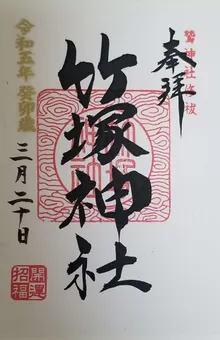 奉拝
鷲神社修祓
竹塚神社
令和五年 癸卯歳
三月二十日
開運
招福